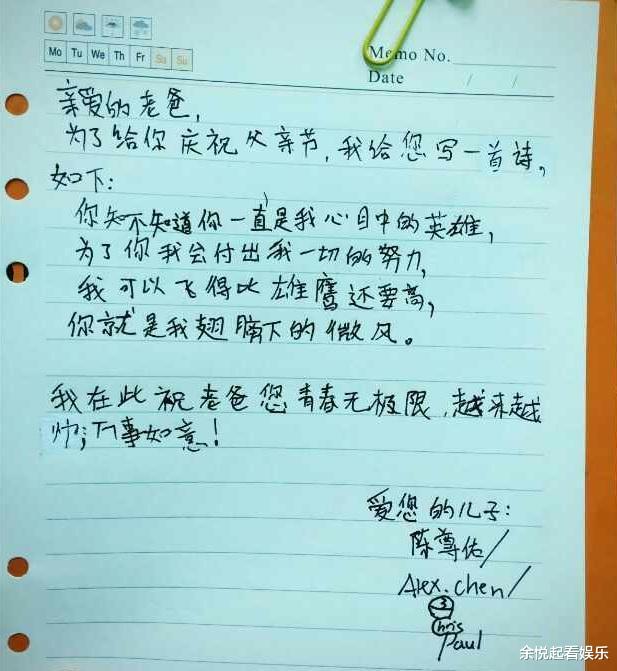 Mo Tu We Th Fr Sa Su
Memo No.
Date / /
亲爱的老爸,
为了给你庆祝父亲节,我给您写一首诗,
如下:
你知不知道你一直是我心目中的英雄,
为了你我会付出我一切的努力,
我可以飞得比雄鹰还要高,
你就是我翅膀下的微风。
我在此祝老爸您青春无极限,越来越
万事如意!
爱您的儿子:
陈尊佑/
Alex.chen/
3
Chris
Paul
余悦起看娱乐